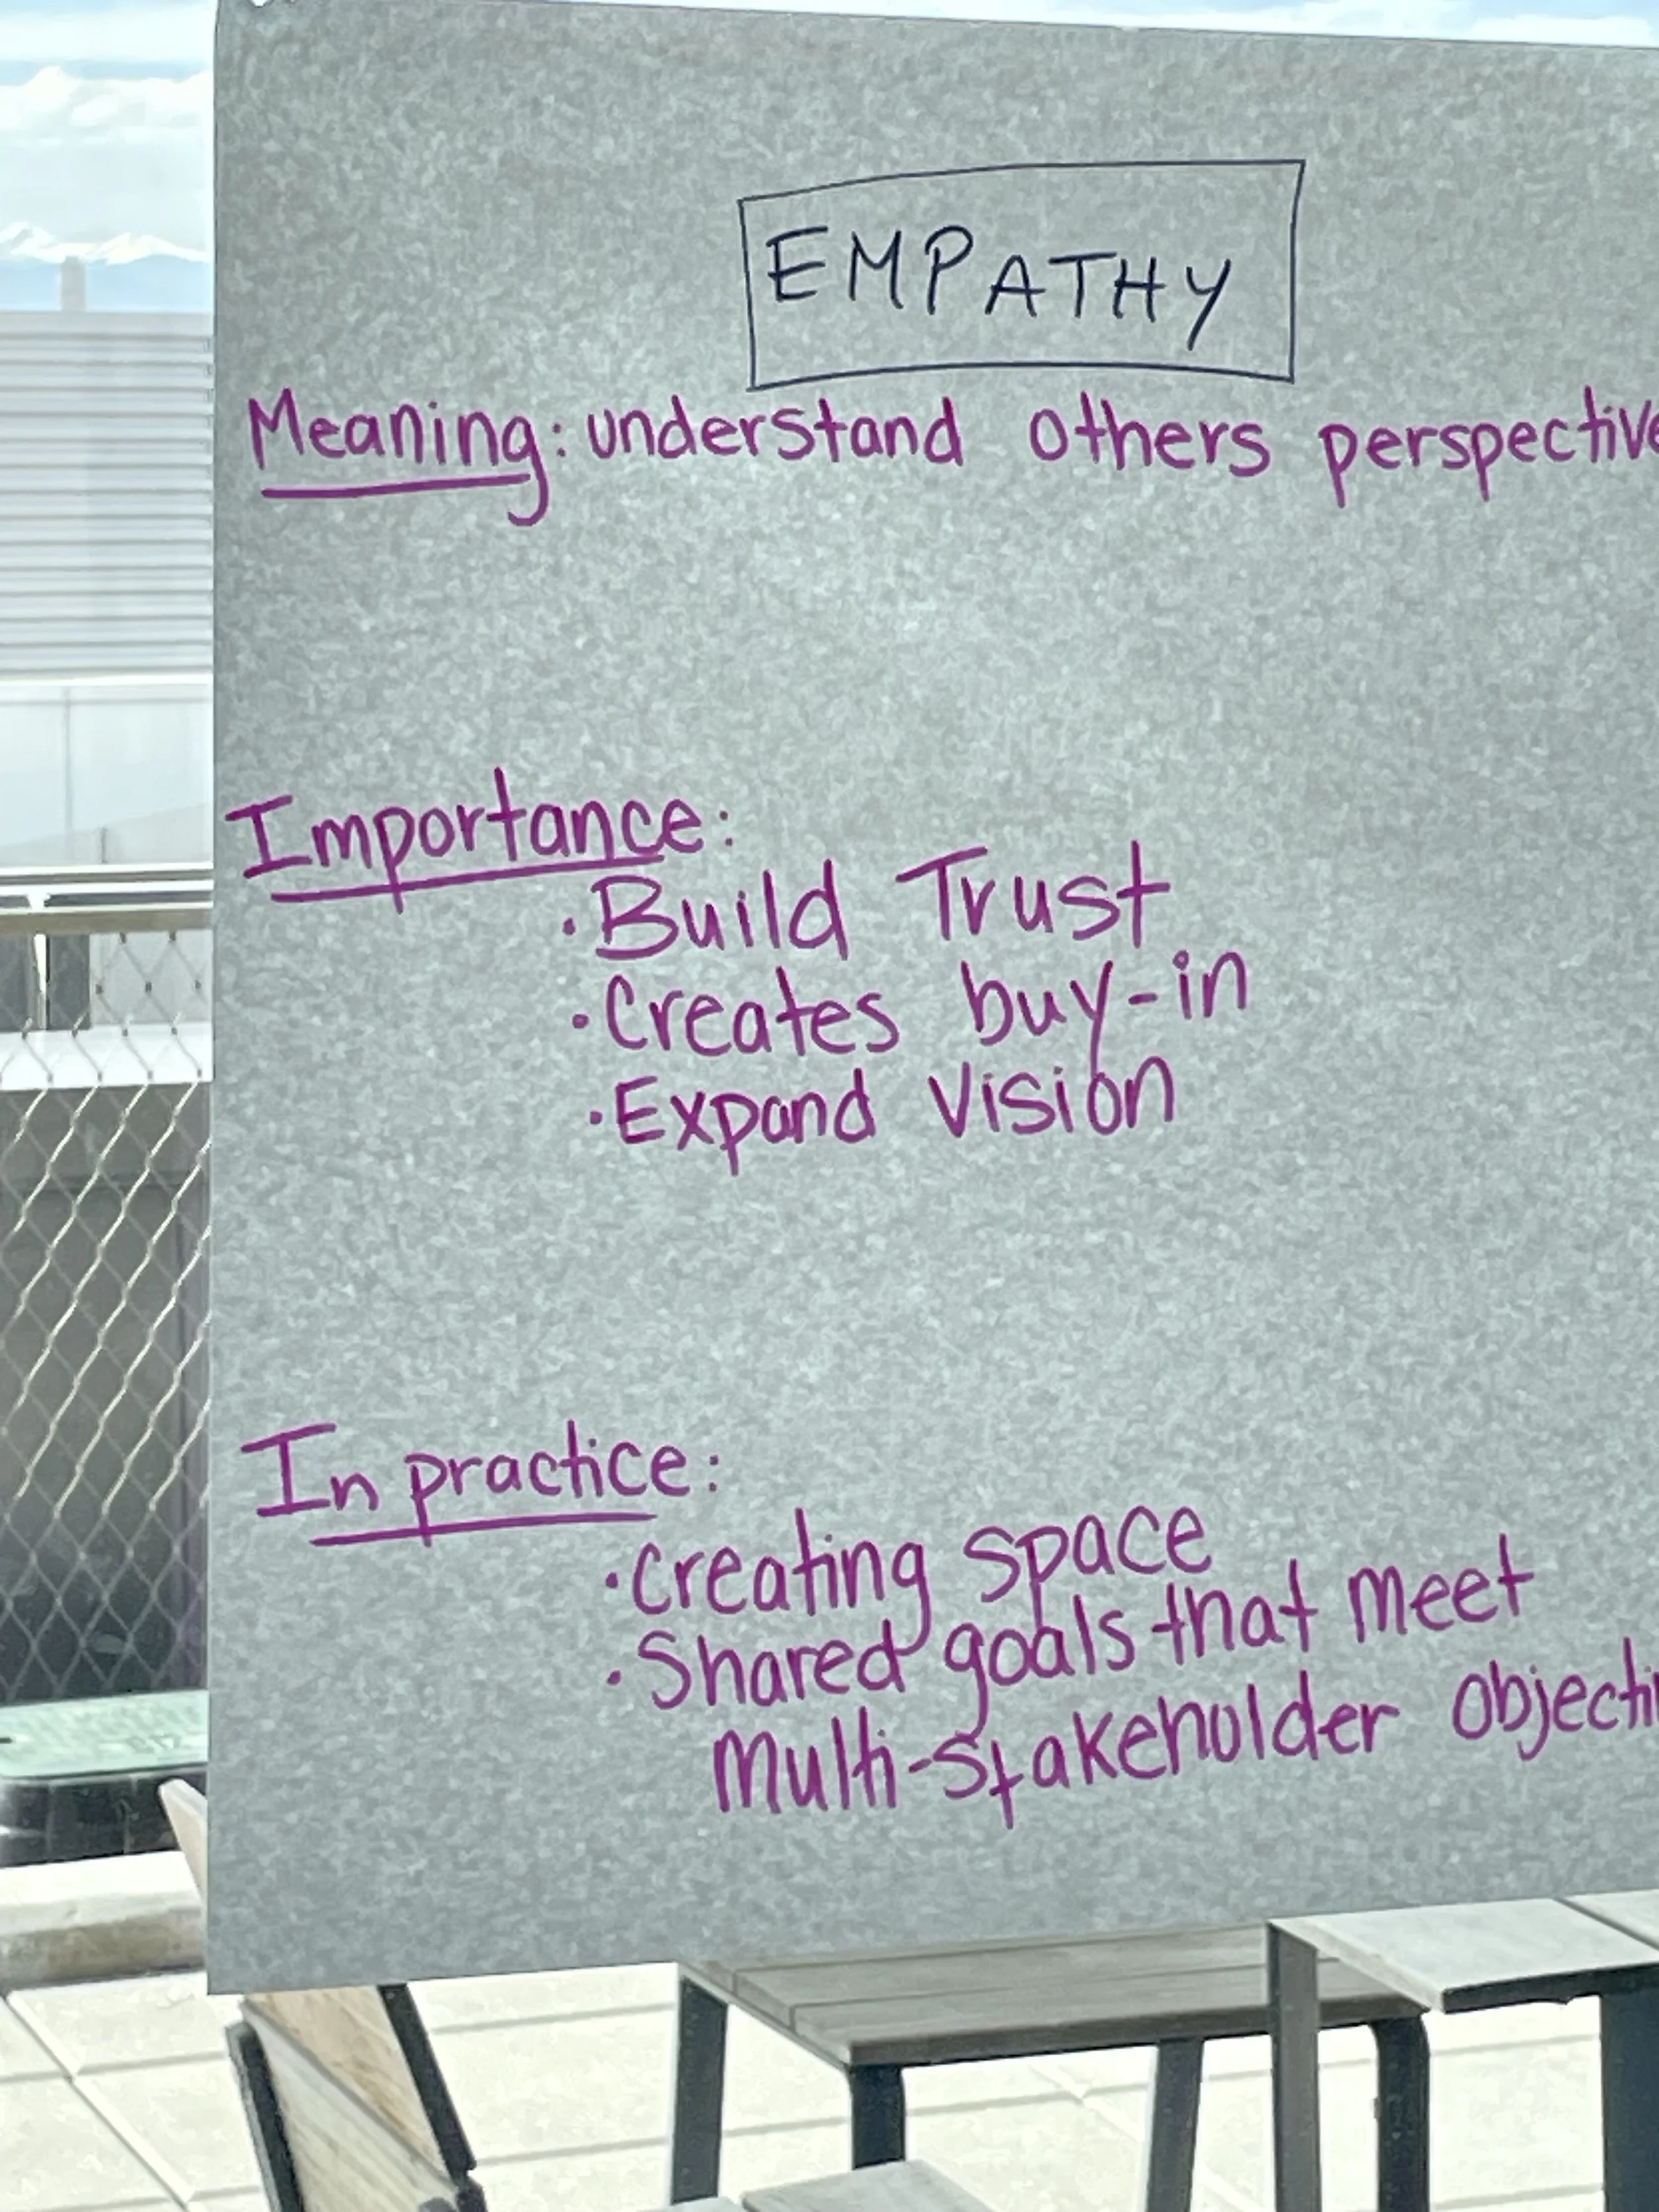 EMPATHY
Meaning: understand others perspective
Importance:
· Build Trust
· Creates buy-in
· Expand Vision
In practice:
· Creating space
· Shared goals that meet
Multi-stakeholder